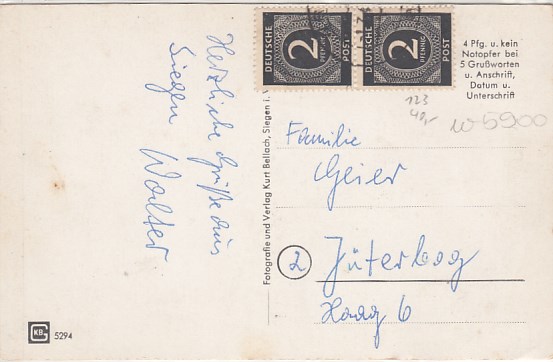 Herzliche Grüße aus
Siegen Walter
DEUTSCHE
2
PFENNIG
POST
DEUTSCHE
2
PFENNIG
POST
4 Pfg. u. kein
Notopfer bei
5 Grußworten
u. Anschrift,
Datum u.
Unterschrift
123
40,-
W5900
Fotografie und Verlag Kurt Bellach, Siegen i. W
Familie
Geier
2 Jüterbog
Haag 6
KB
5294